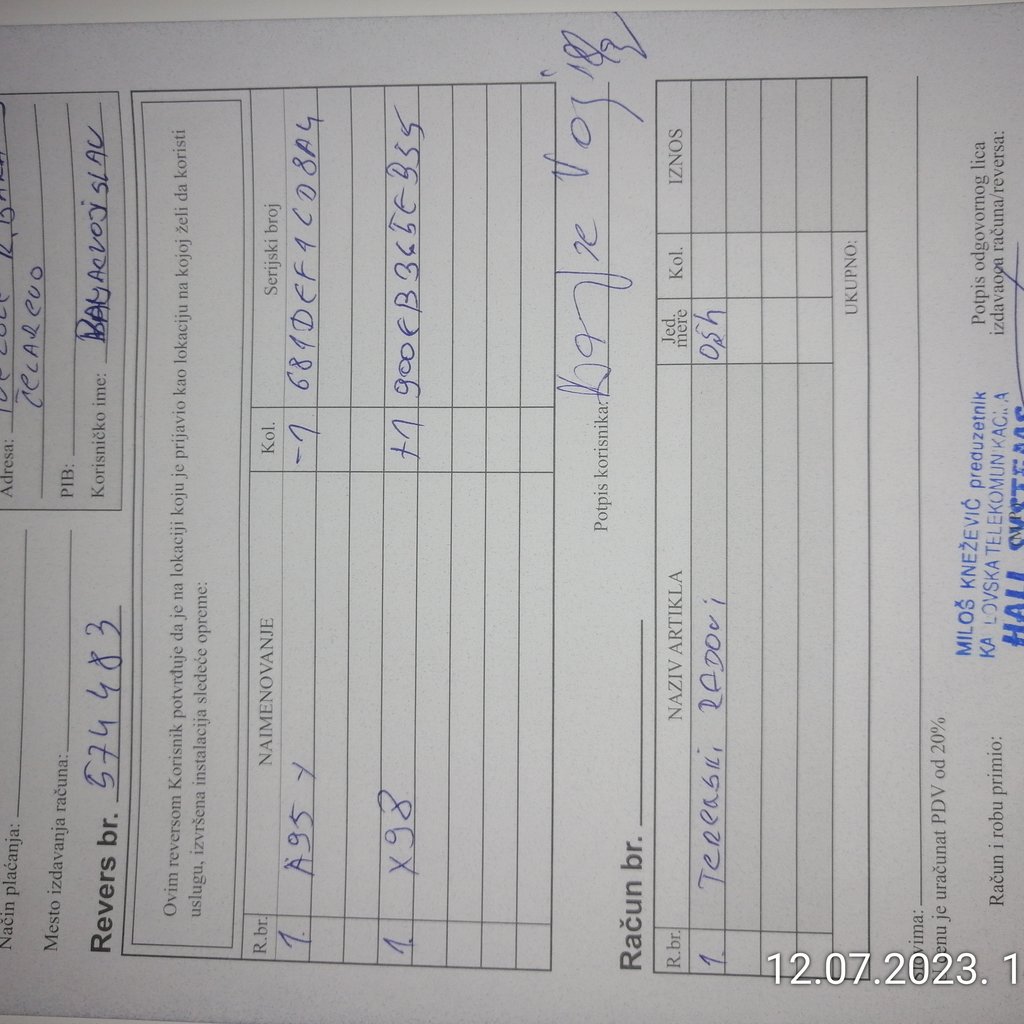 Način plaćanja:
Mesto izdavanja računa:
Revers br. 574 483
Adresa:
ČELAREVO
PIB:
Korisničko ime: VOJISLAV
Ovim reversom Korisnik potvrđuje da je na lokaciji koju je prijavio kao lokaciju na kojoj želi da koristi
uslugu, izvršena instalacija sledeće opreme:
R.br. NAIMENOVANJE Kol. Serijski broj
1. A95 Y -1 681DEF1CD8A4
1. X98 +1 900EB3656B35
Potpis korisnika:
Račun br.
R.br. NAZIV ARTIKLA Jed. mere Kol. IZNOS
1. TERENSKI RADOVI 0,5h
UKUPNO:
Slovima:
U cenu je uračunat PDV od 20%
Račun i robu primio:
MILOŠ KNEŽEVIĆ preduzetnik
KA LOVSKA TELEKOMUNIKACIJA
HALL SYSTEMS
Potpis odgovornog lica
izdavaoca računa/reversa:
12.07.2023. 1